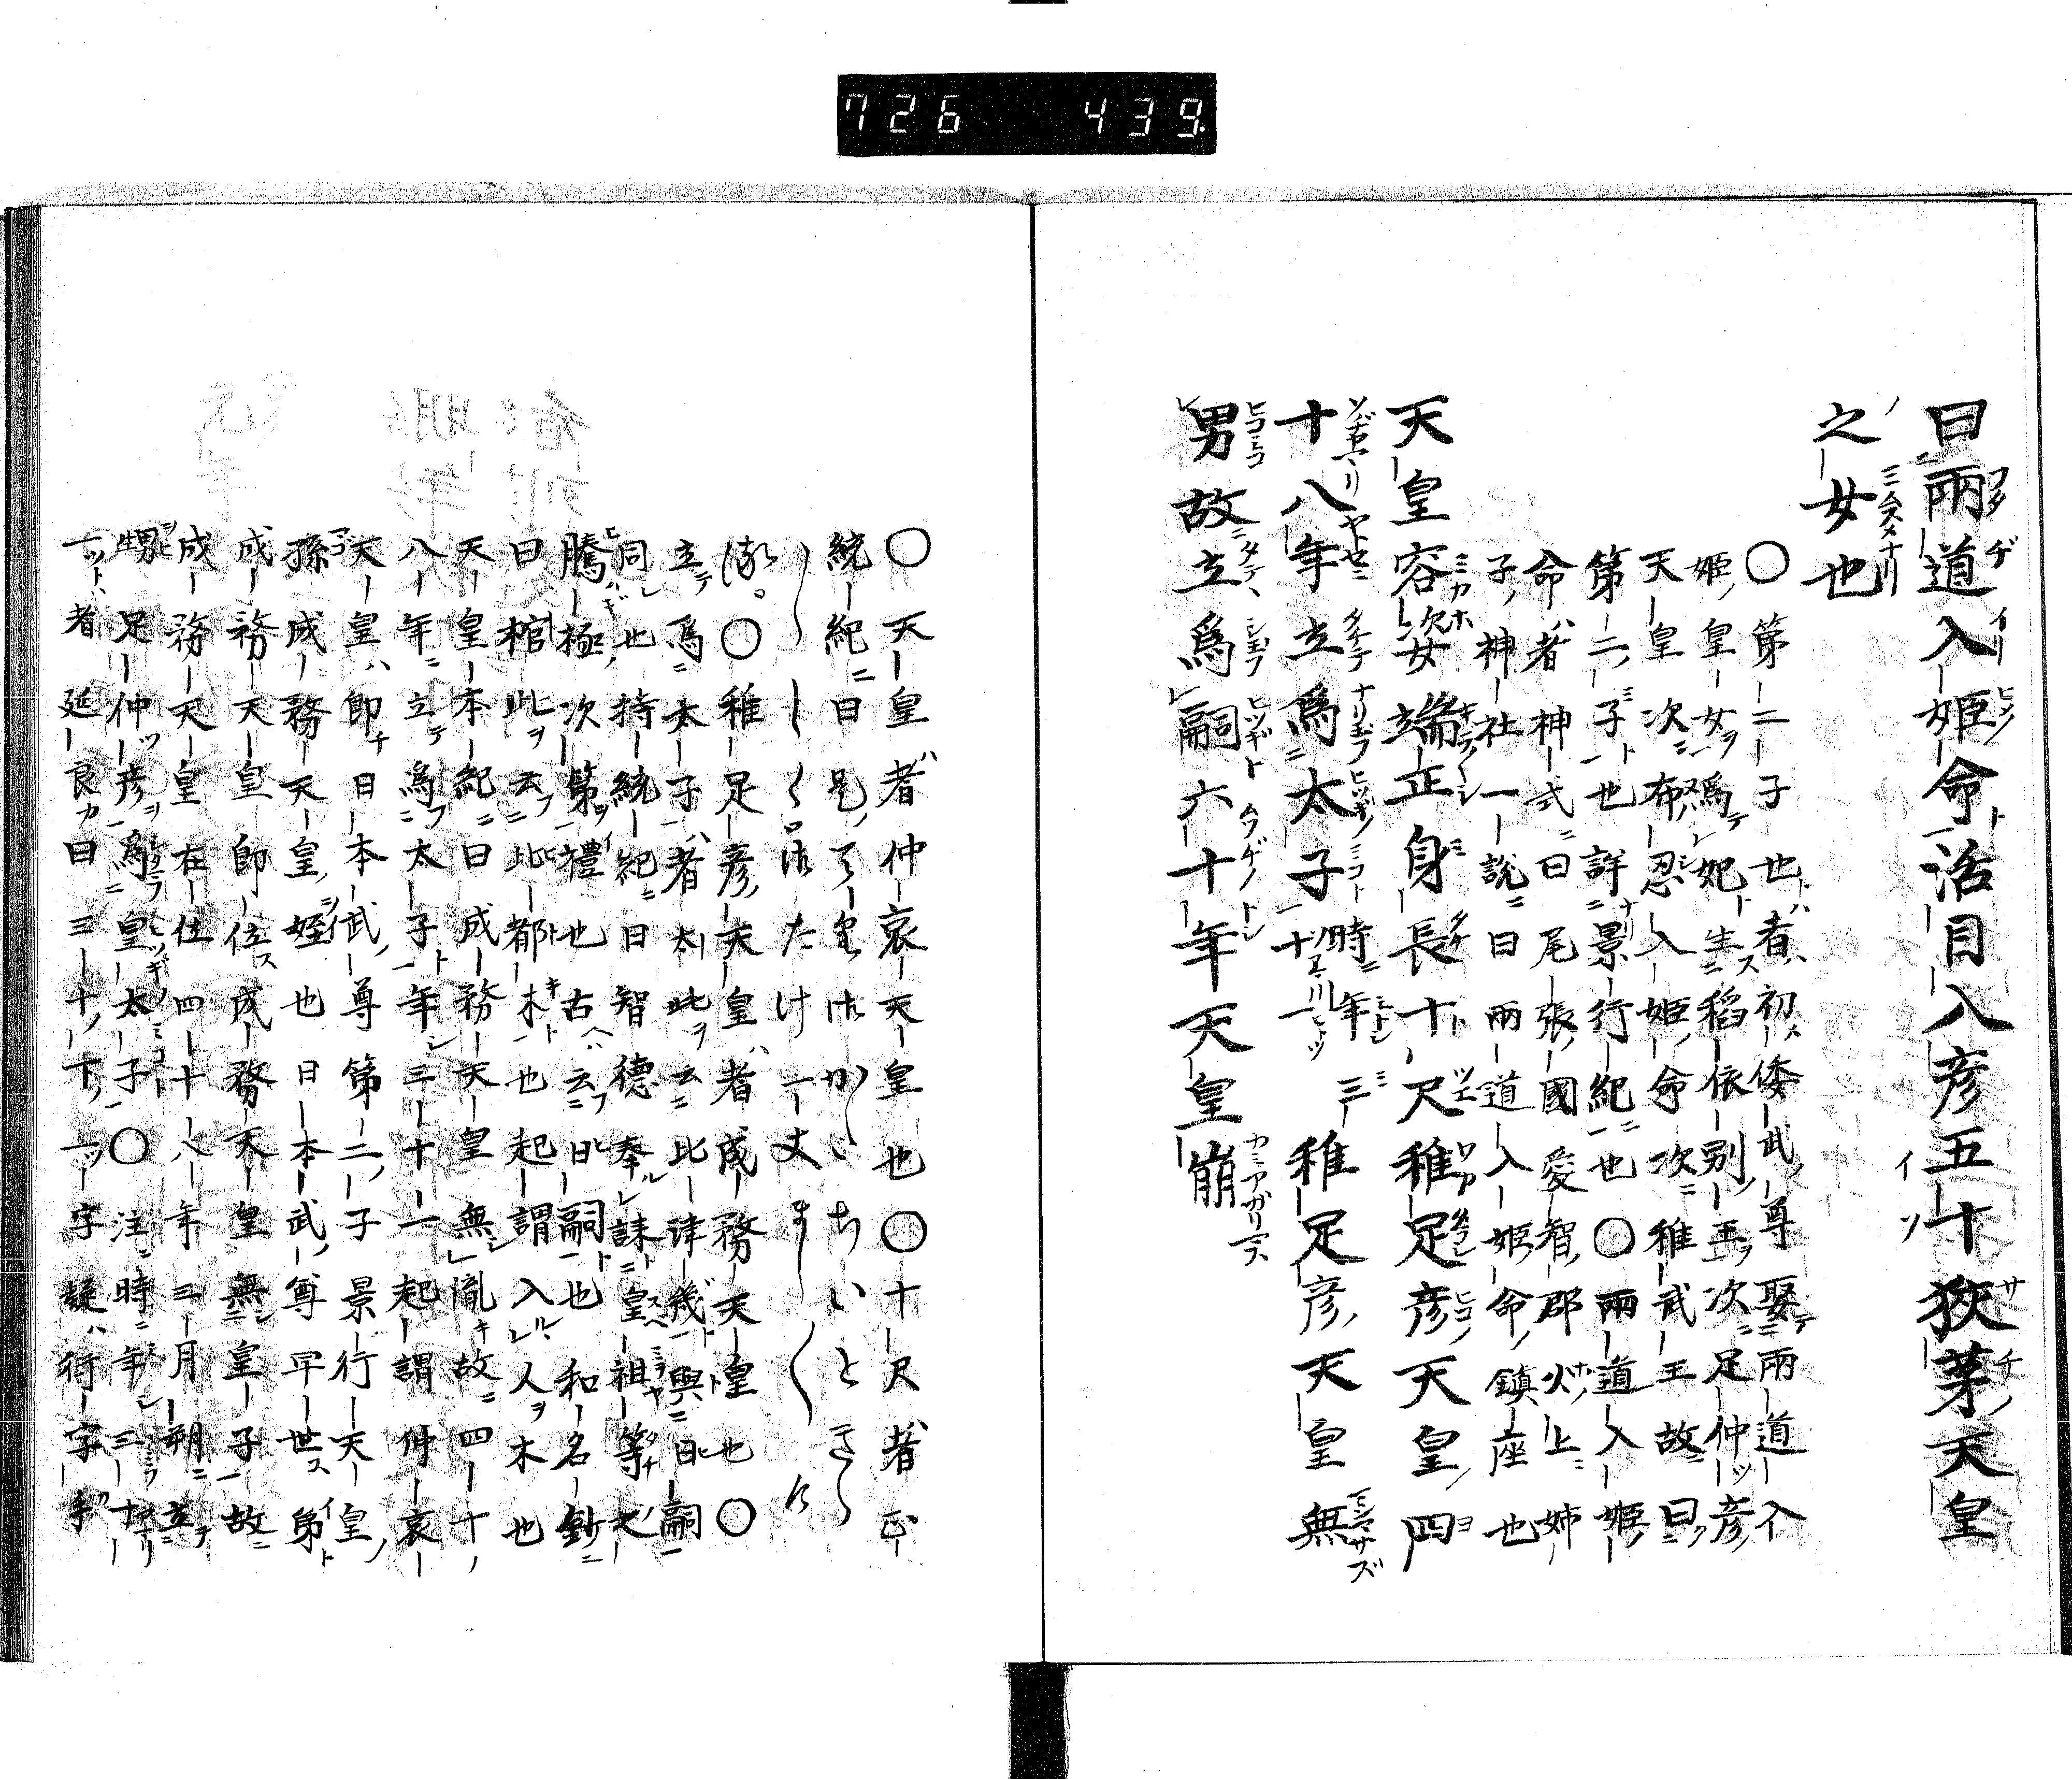 726 439
曰兩道入姫命活目入彦五十狹茅天皇
之女也
○第二子也者初倭武尊娶兩道入
姫皇女爲妃生稻依別王次足仲彦
天皇次布忍入姫命次稚武王故曰
第二子也詳景行紀也○兩道入姫
命者神式曰尾張國愛智郡火上姉
子神社一説曰兩道入姫命鎮座也
天皇容姿端正身長十尺稚足彦天皇四
十八年立爲太子時年三十一稚足彦天皇無
男故立爲嗣六十年天皇崩
○天皇者仲哀天皇也○十尺者正
統紀曰是
たけ一丈
○稚足彦天皇者成務天皇也○
立爲太子者太此云比津幾與日嗣
同也持統紀曰智德奉誄皇祖等之
騰極次第禮也古云日嗣也和名鈔
曰棺此云比都木也起謂入人木也
天皇本紀曰成務天皇無胤故四十
八年立爲太子年三十一起謂仲哀
天皇即日本武尊第二子景行天皇
孫成務天皇姪也日本武尊早世第
成務天皇即位成務天皇無皇子故
成務天皇在位四十八年三月朔立
甥足仲彦爲皇太子○注時年三十
一者延良曰三十下一字疑行字乎